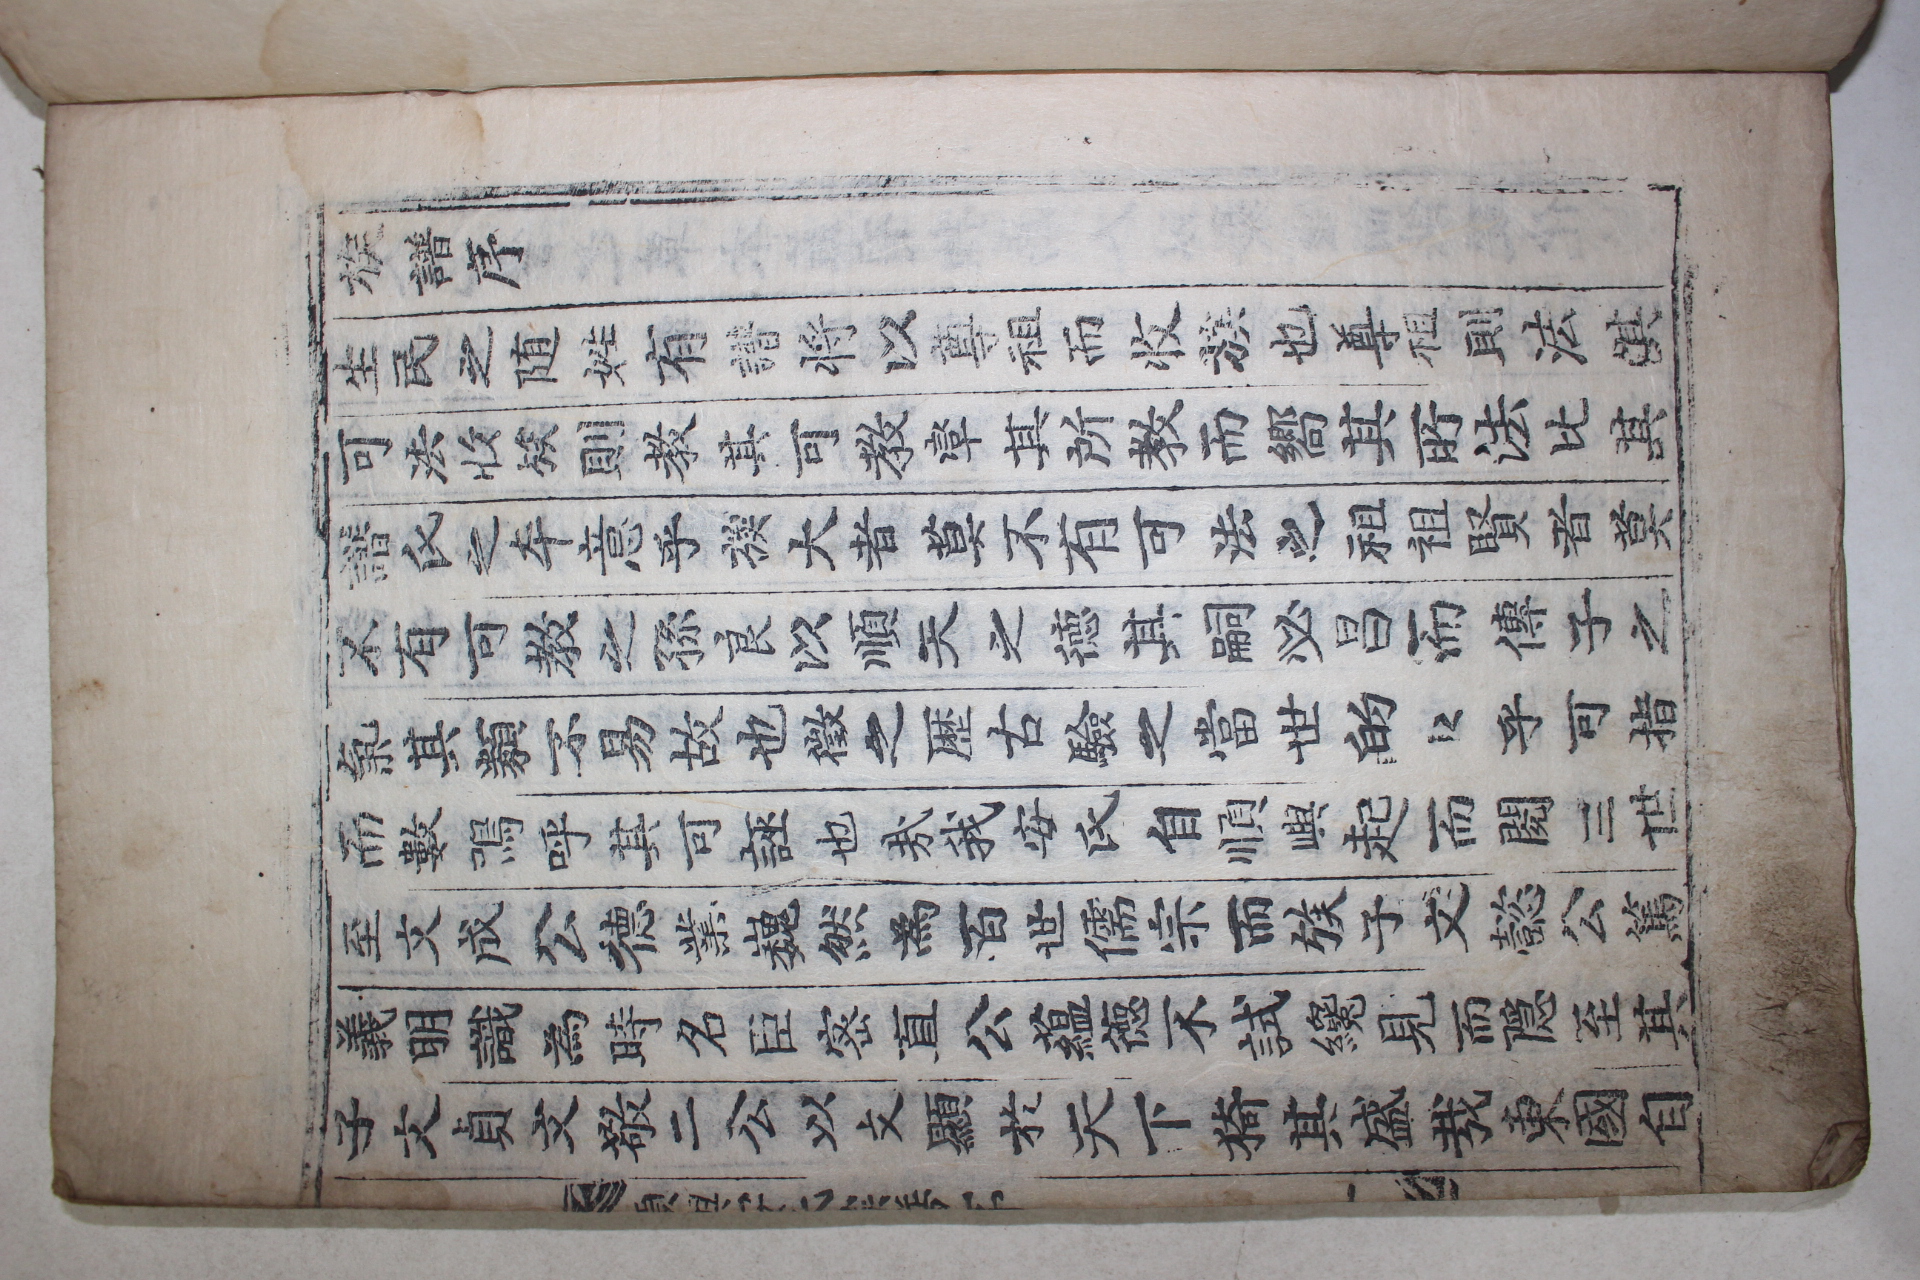 族譜序
生民之随姓有譜將以尊祖而收族也尊祖則法其
可法收族則教其可教率其所教而嚮其所法比其
譜氏之本意乎族大者莫不有可法之祖祖賢者莫
不有可教之孫良以順天之德其嗣必昌而傳子之
氣其類不易故也徵之歷古驗之當世的〻乎可指
而數嗚呼其可誣也哉我安氏自順興起而閱三世
至文成公德業巍然為百世儒宗而族子文懿公篤
義明識為時名臣密直公蘊德不試纔見而隱至其
子文貞文敬二公以文顯於天下猗其盛哉東國自